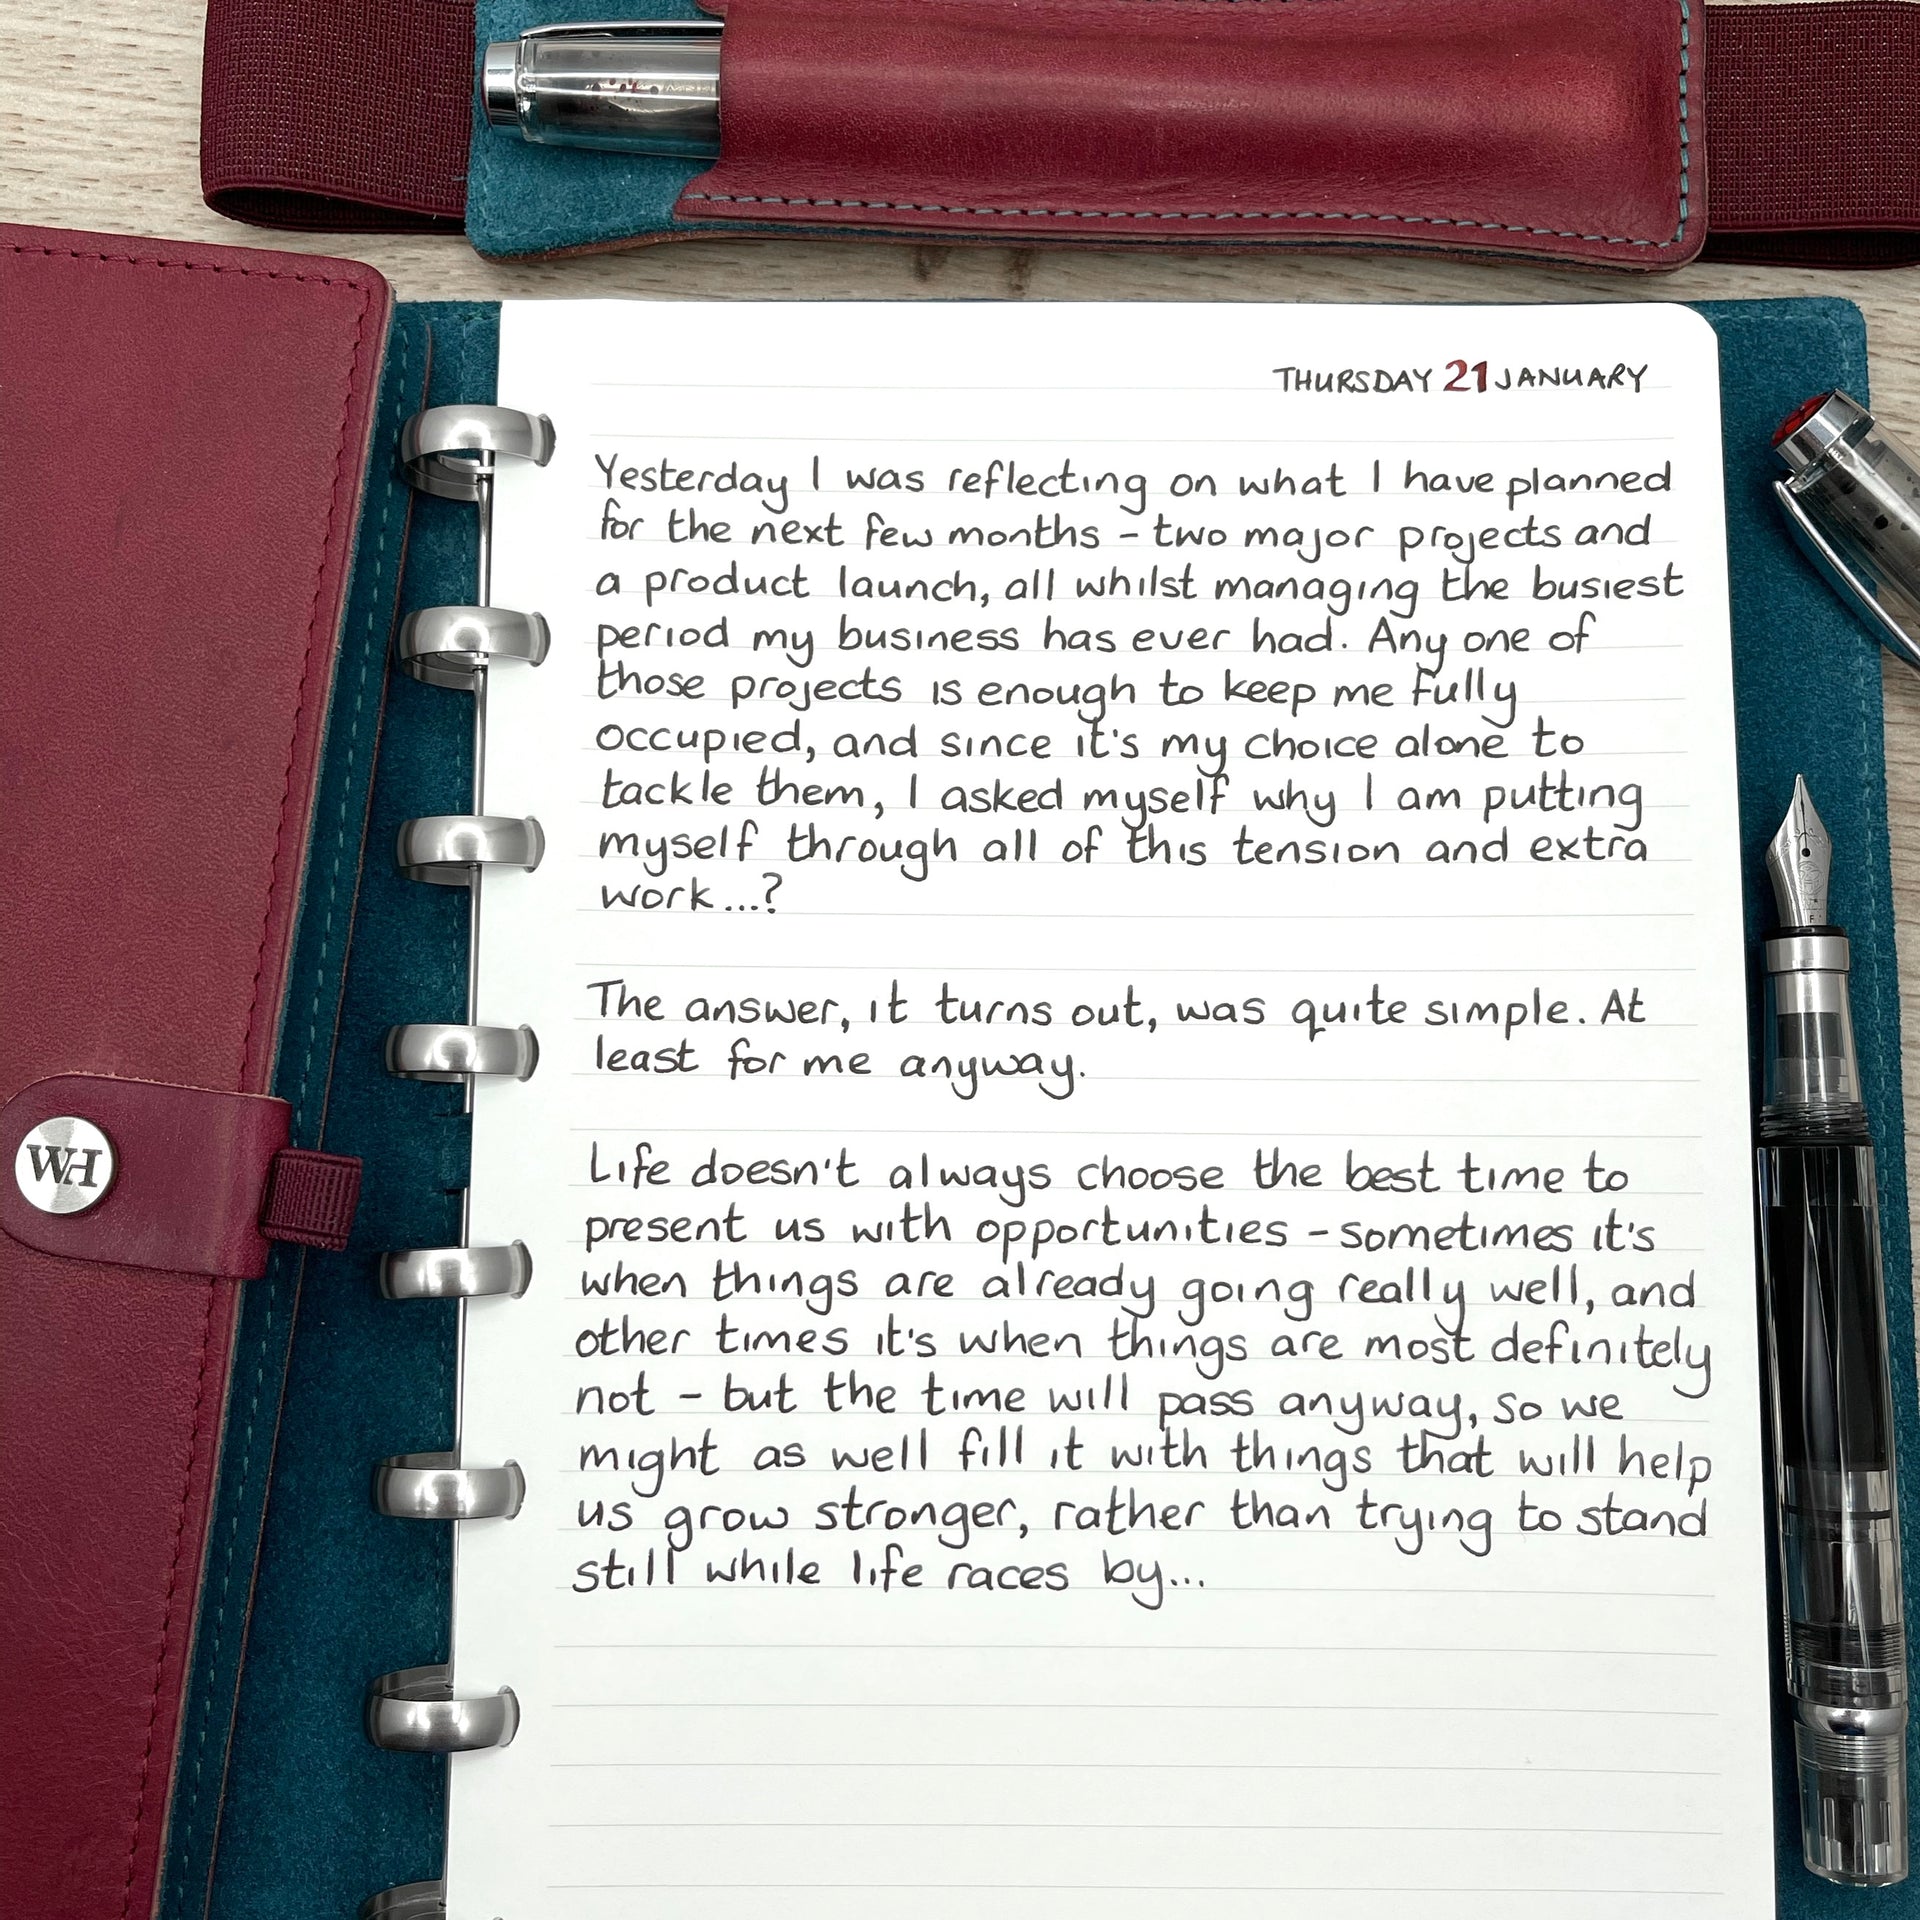 THURSDAY 21 JANUARY
Yesterday I was reflecting on what I have planned
for the next few months - two major projects and
a product launch, all whilst managing the busiest
period my business has ever had. Any one of
those projects is enough to keep me fully
occupied, and since it's my choice alone to
tackle them, I asked myself why I am putting
myself through all of this tension and extra
work...?
The answer, it turns out, was quite simple. At
least for me anyway.
Life doesn't always choose the best time to
present us with opportunities - sometimes it's
when things are already going really well, and
other times it's when things are most definitely
not - but the time will pass anyway, so we
might as well fill it with things that will help
us grow stronger, rather than trying to stand
still while life races by...
WH
F